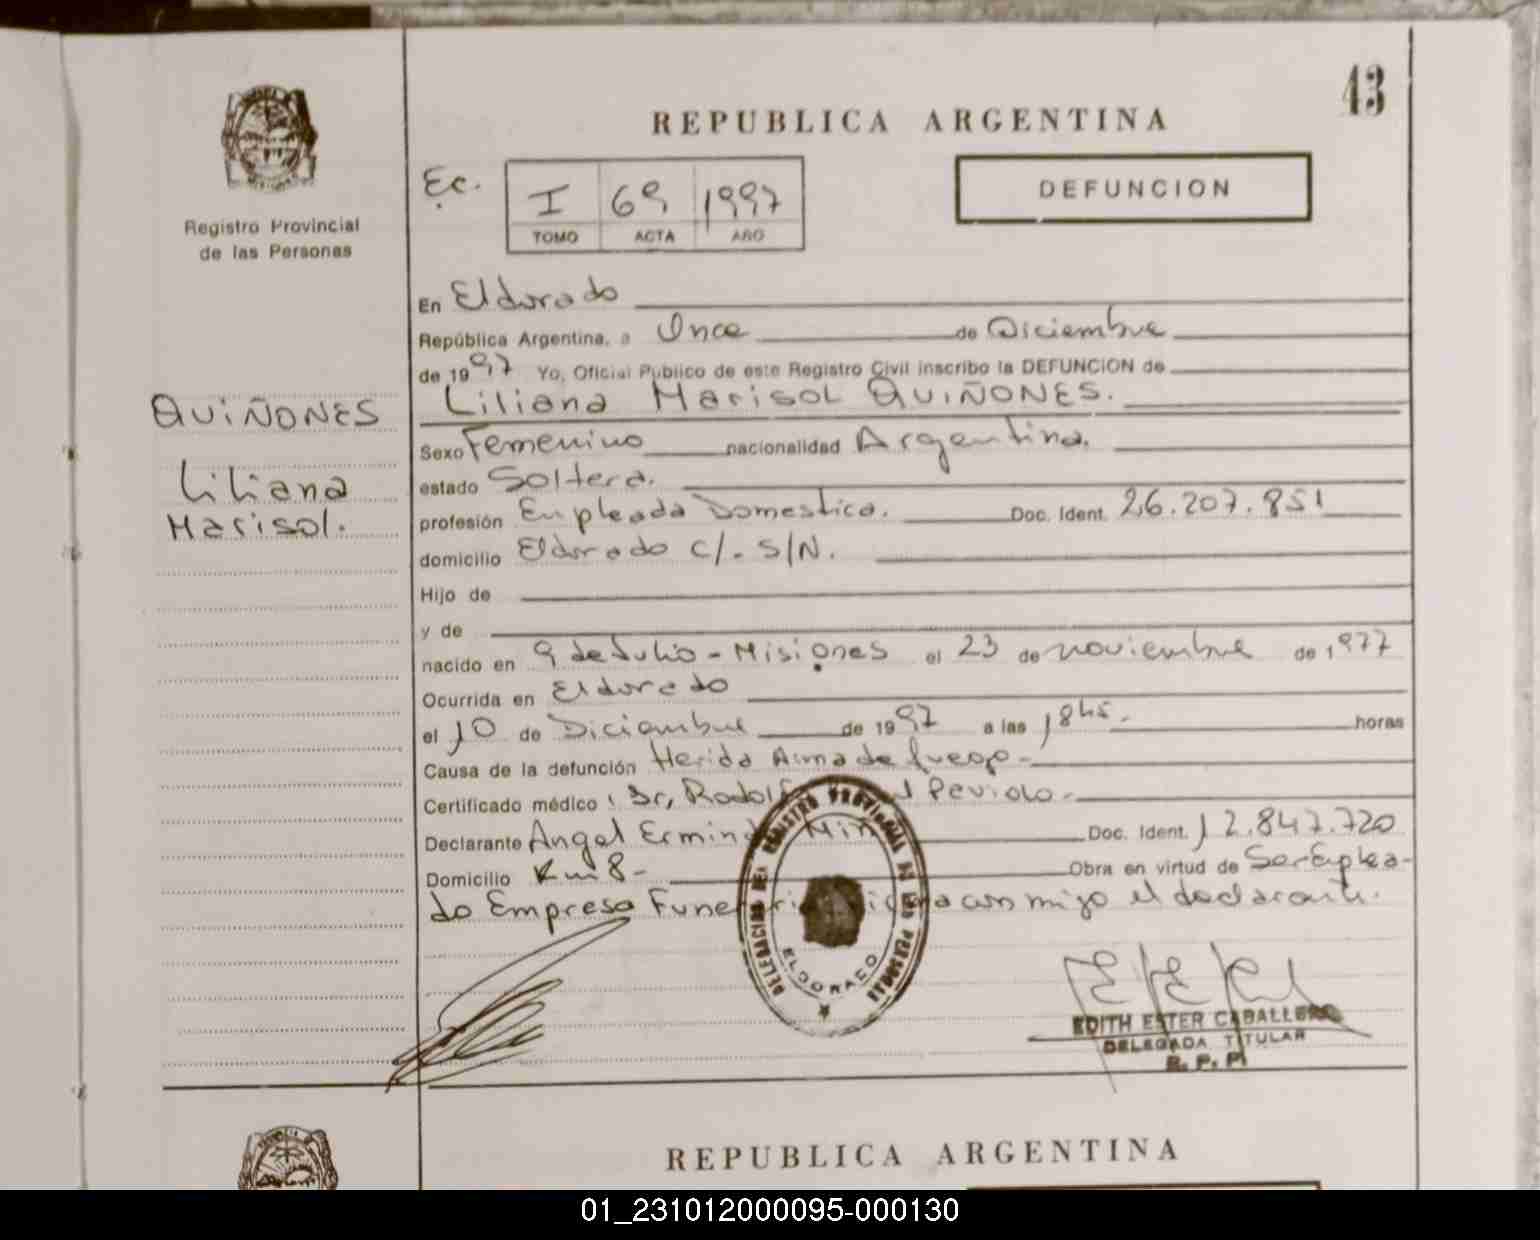 43
REPUBLICA ARGENTINA
Registro Provincial
de las Personas
Ec.
I 69 1997
TOMO ACTA AÑO
DEFUNCION
En Eldorado
República Argentina, a Once de Diciembre
de 1997 Yo, Oficial Publico de este Registro Civil inscribo la DEFUNCION de
Liliana Marisol QUIÑONES.
QUIÑONES
Liliana
Marisol.
Sexo Femenino nacionalidad Argentina.
estado Soltera.
profesión Empleada Domestica. Doc. Ident. 26.207.851
domicilio Eldorado c/. S/N.
Hijo de
y de
nacido en 9 de Julio - Misiones el 23 de noviembre de 1977
Ocurrida en Eldorado
el 10 de Diciembre de 1997 a las 18 hs. horas
Causa de la defunción Herida Arma de fuego -
Certificado médico: Dr,
Declarante Angel Doc. Ident. 12.847.720
Domicilio Km 8- Obra en virtud de Ser Emplea-
do Empresa Funeraria con migo el declarante.
DELEGACION DEL REGISTRO PROVINCIAL DE LAS PERSONAS
ELDORADO
EDITH ESTER CABALLERO
DELEGADA TITULAR
R. P. P.
REPUBLICA ARGENTINA
01_231012000095-000130